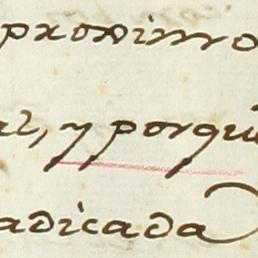 proximo
al, y porqu
adicada